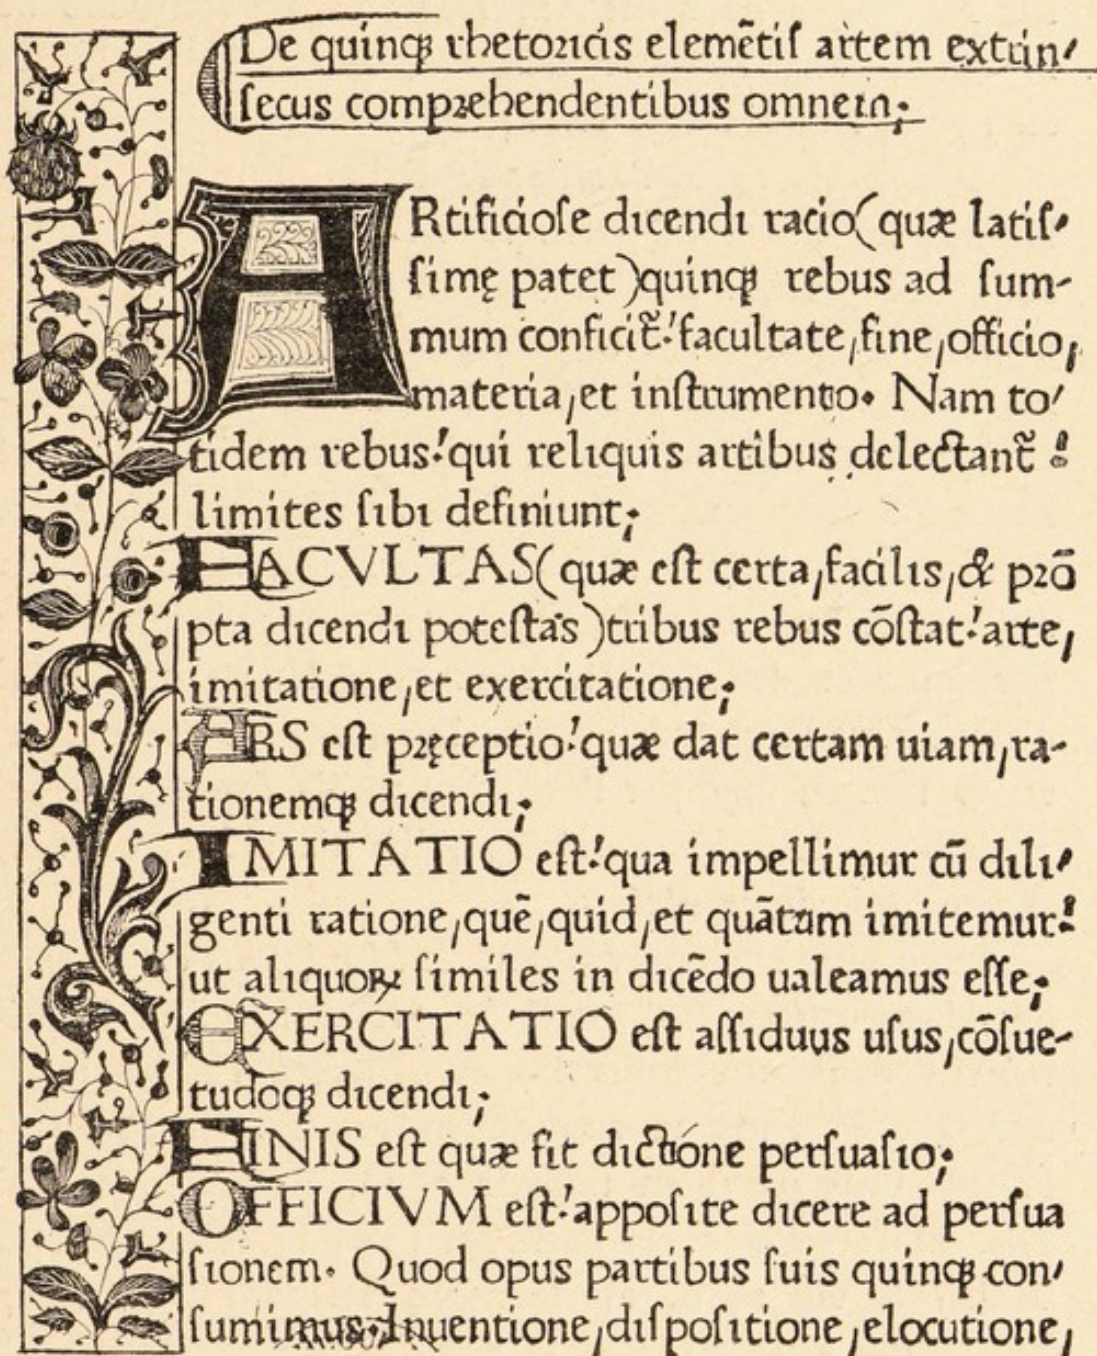 De quinqꝫ rhetoꝛicis elemẽtiſ artem extrin/
ſecus compꝛehendentibus omnem;
ARtificioſe dicendi racio(quæ latiſ/
ſimę patet)quinqꝫ rebus ad ſum-
mum conficit̃:'facultate,fine,officio,
materia,et inſtrumento. Nam to/
tidem rebus:'qui reliquis artibus delectant̃:'
limites ſibi definiunt;
FACVLTAS(quæ eſt certa,facilis,& pꝛõ
pta dicendi poteſtas)tribus rebus cõſtat:'arte,
imitatione,et exercitatione;
ARS eſt pꝛęceptio:'quæ dat certam uiam,ra-
tionemqꝫ dicendi;
IMITATIO eſt:'qua impellimur cũ dili/
genti ratione,quẽ,quid,et quãtum imitemur:'
ut aliquoꝝ ſimiles in dicẽdo ualeamus eſſe;
EXERCITATIO eſt aſſiduus uſus,cõſue-
tudoqꝫ dicendi;
FINIS eſt quæ fit dictióne perſuaſio;
OFFICIVM eſt:'appoſite dicere ad perſua
ſionem. Quod opus partibus ſuis quinqꝫ con/
ſumimus.Inuentione,diſpoſitione,elocutione,